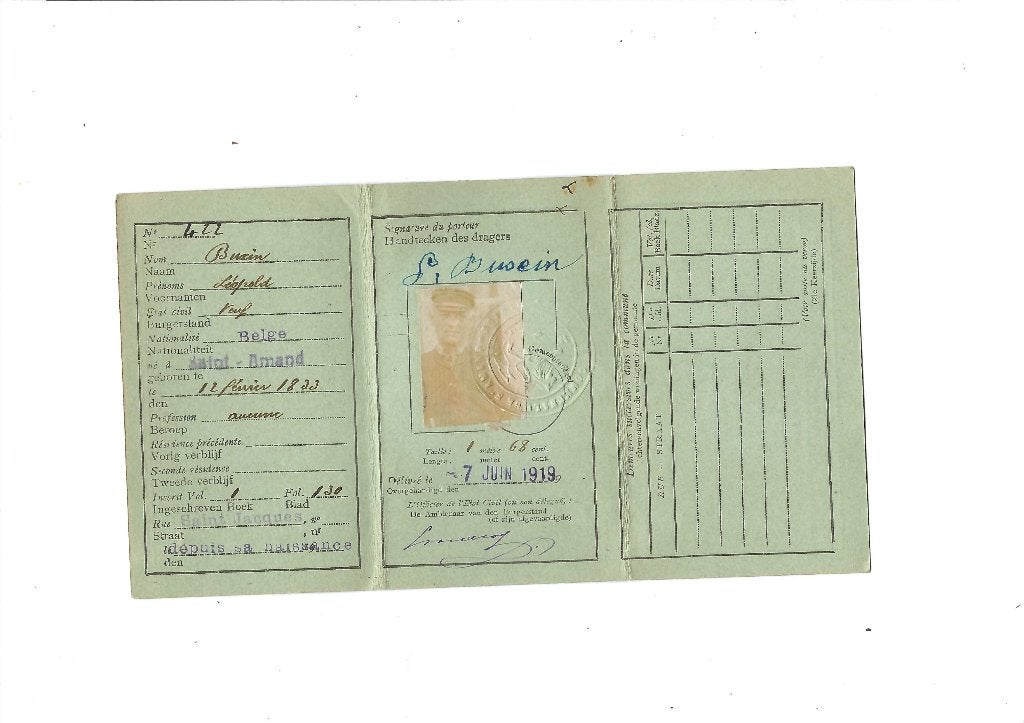 N° 422
Nr
Nom Buxin
Naam
Prénoms Léopold
Voornamen
Etat civil Veuf
Burgerstand
Nationalité Belge
Nationaliteit
né à Saint-Amand
geboren te
le 12 février 1833
den
Profession aucune
Beroep
Résidence précédente
Vorig verblijf
Seconde résidence
Tweede verblijf
Inscrit Vol. 1 Fol. 130
Ingeschreven Boek Blad
Rue Saint Jacques, n°
Straat , nr
le depuis sa naissance
den
Signature du porteur
Handteeken des dragers
L. Buxin
Taille : 1 mètre 68 cent.
Lengte : meter cent.
Délivré le -7 JUIN 1919
Overgehandigd den
L'Officier de l'Etat Civil (ou son délégué) :
De Ambtenaar van den Burgerstand
(of zijn afgevaardigde)
Demeures successives dans la commune
Achtereenvolgende woningen in de gemeente
RUE - STRAAT
N°
Nr
Date
Datum
Vol. Fol.
Boek Bladz.
(Voir suite au verso)
(Zie Keerzijde)